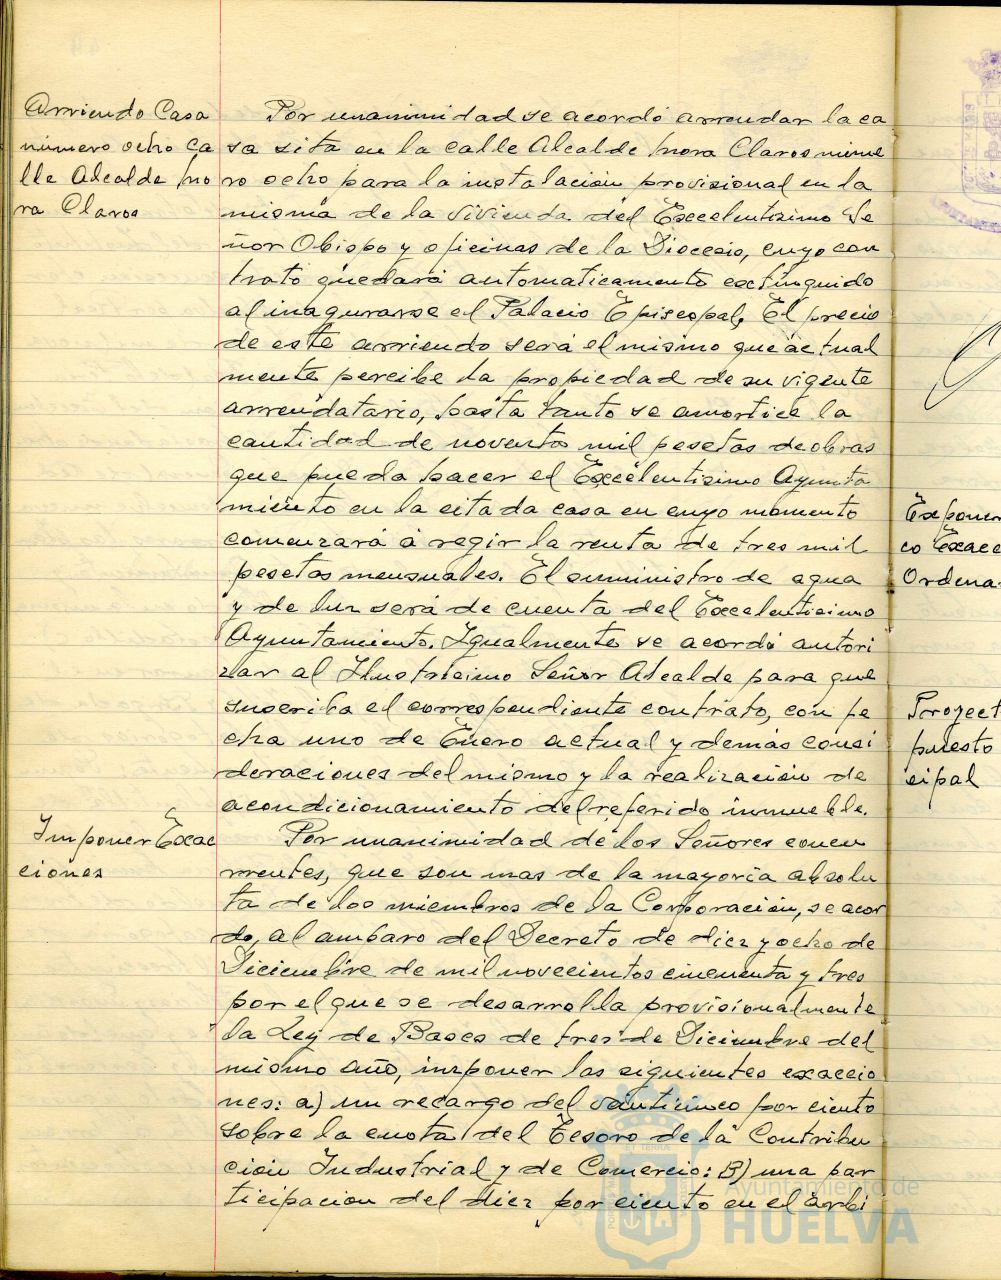 Arriendo Casa
número ocho ca
lle Alcalde Mo
ra Claros
Por unanimidad se acordó arrendar la ca
sa sita en la calle Alcalde Mora Claros núme
ro ocho para la instalación provisional en la
misma de la vivienda del Excelentísimo Se
ñor Obispo y oficinas de la Diócesis, cuyo con
trato quedará automáticamente extinguido
al inagurarse el Palacio Episcopal. El precio
de este arriendo será el mismo que actual
mente percibe la propiedad de su vigente
arrendatario, hasta tanto se amortice la
cantidad de noventa mil pesetas de obras
que pueda hacer el Excelentísimo Ayunta
miento en la citada casa en cuyo momento
comenzará a regir la renta de tres mil
pesetas mensuales. El suministro de agua
y de luz será de cuenta del Excelentísimo
Ayuntamiento. Igualmente se acordó autori
zar al Ilustrísimo Señor Alcalde para que
suscriba el correspondiente contrato, con fe
cha uno de Enero actual y demás consi
deraciones del mismo y la realización de
acondicionamiento del referido inmueble.
Imponer Exac
ciones
Por unanimidad de los Señores concu
rrentes, que son mas de la mayoría absolu
ta de los miembros de la Corporación, se acor
dó, al amparo del Decreto de diez y ocho de
Diciembre de mil novecientos cincuenta y tres
por el que se desarrolla provisionalmente
la Ley de Bases de tres de Diciembre del
mismo año, imponer las siguientes exaccio
nes: a) un recargo del vänticinco por ciento
sobre la cuota del Tesoro de la Contribu
ción Industrial y de Comercio: B) una par
ticipación del diez por ciento en el arbi
Exponer
co Exacc
Ordena
Proyect
puesto
cipal
Ayuntamiento de
HUELVA